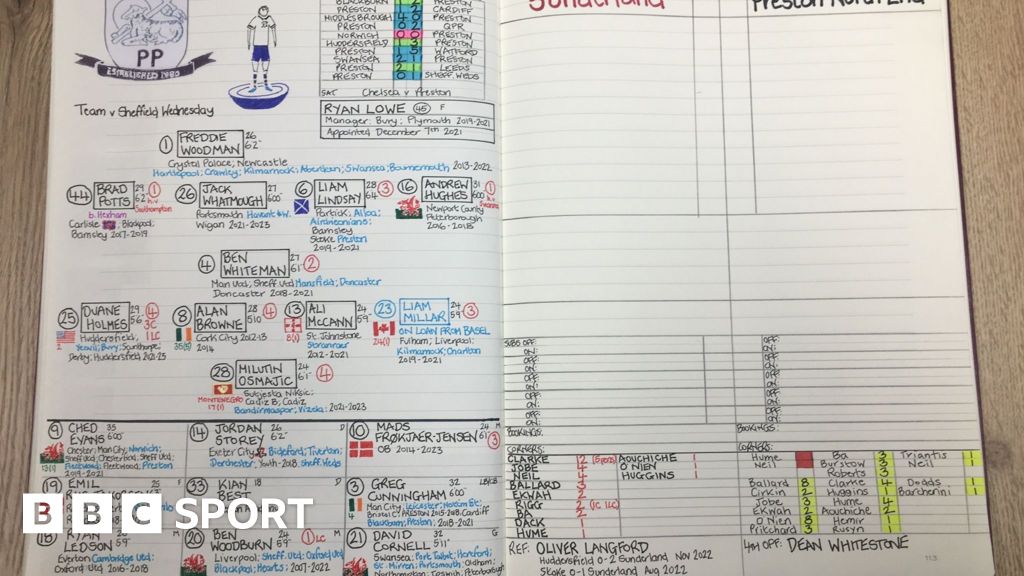 PP
ESTABLISHED 1980
BLACKBURN 1 2 PRESTON
PRESTON CARDIFF
MIDDLESBROUGH 4 0 PRESTON
PRESTON 0 2 QPR
NORWICH 0 PRESTON
HUDDERSFIELD 1 3 PRESTON
PRESTON 1 5 WATFORD
SWANSEA 2 1 PRESTON
PRESTON 2 1 LEEDS
PRESTON 0 SHEFF WEDS
SAT Chelsea v Preston
Team v Sheffield Wednesday
RYAN LOWE 45 F
Manager: Bury; Plymouth 2019-2021
Appointed December 7th 2021
1 FREDDIE WOODMAN 26 62
Crystal Palace; Newcastle
Hartlepool; Crawley; Kilmarnock; Aberdeen; Swansea; Bournemouth 2013-2022
44 BRAD POTTS 29 62 1
h.v Southampton
b. Hexham
Carlisle Blackpool;
Barnsley 2017-2019
26 JACK WHATMOUGH 27 600
Portsmouth Havant &W.
Wigan 2021-2023
6 LIAM LINDSAY 28 64 3
Partick; Alloa;
Airdrieonians;
Barnsley
Stoke Preston
2019-2021
16 ANDREW HUGHES 31 600 1
h.v Swansea
Newport County
Peterborough
2016-2018
4 BEN WHITEMAN 27 61 2
Man Utd; Sheff Utd Mansfield; Doncaster
Doncaster 2018-2021
25 DUANE HOLMES 29 56 4
3C
1 LC
2
Huddersfield;
Yeovil; Bury; Scunthorpe;
Derby; Huddersfield 2021-23
8 ALAN BROWNE 28 510 4
Cork City 2012-13
2014
13 ALI McCANN 24 59
St. Johnstone
Stranraer
2012-2021
23 LIAM MILLAR 24 59 3
ON LOAN FROM BASEL
Fulham; Liverpool;
Kilmarnock; Charlton
2019-2021
24(1)
28 MILUTIN OSMAJIC 24 61 4
MONTENEGRO
17(1)
Sutjeska Niksic;
Cadiz B; Cadiz
Bandirmaspor; Vizela; 2021-2023
9 CHED EVANS 35 600
Chester; Man City; Norwich;
Sheff Utd; Chesterfield; Sheff Utd;
Fleetwood; Fleetwood; Preston
2019-2021
13(1)
14 JORDAN STOREY 26 62 D
Exeter City Bideford; Tiverton;
Dorchester; Youth-2018; Sheff Weds
10 MADS FRØKJAER-JENSEN 24 61 M 3
OB 2014-2023
19 EMIL 25 F
33 KIAN BEST D
3 GREG CUNNINGHAM 32 600 LB/CB
Man City; Leicester; Nottm For.;
Bristol C; Preston 2015-2018; Cardiff
Blackburn; Preston; 2018-2021
18 RYAN LEDSON
Everton; Cambridge Utd;
Oxford Utd 2016-2018
20 BEN WOODBURN 24 1 LC M
Liverpool; Sheff. Utd; Oxford Utd
Blackpool; Hearts; 2017-2022
21 DAVID CORNELL 32 511 G
Swansea; Port Talbot; Hereford;
St. Mirren; Portsmouth; Oldham;
Northampton; Ipswich; Peterborough
BBC SPORT
Sunderland
Preston North End
SUBS OFF:
ON:
OFF:
ON:
OFF:
ON:
OFF:
ON:
OFF:
ON:
BOOKINGS:
CORNERS:
OFF:
ON:
OFF:
ON:
OFF:
ON:
OFF:
ON:
OFF:
ON:
BOOKINGS:
CORNERS:
CLARKE 12 (5 pens) AOUCHICHE 1
JOBE 4 O'NIEN 1
NEIL 4 HUGGINS 1
BALLARD 3
EKWAH 2
RIGG 2 (1C, 1LC)
BA 2
DACK 1
HUME 1
Hume Ba 3 Triantis 1
Neil Burstow 3 Neil 1
Roberts 3
Ballard 8 Clarke 4 Dodds 1
Cirkin 2 Huggins 4 Bachirini 1
Jobe 3 Hume 4
Ekwah 2 Aouchiche 2
O'Nien 8 Hemir 1
Pritchard 3 Rusyn 1
REF: OLIVER LANGFORD
Huddersfield 0-2 Sunderland Nov 2022
Stoke 0-1 Sunderland Aug 2022
4TH OFF: DEAN WHITESTONE
113